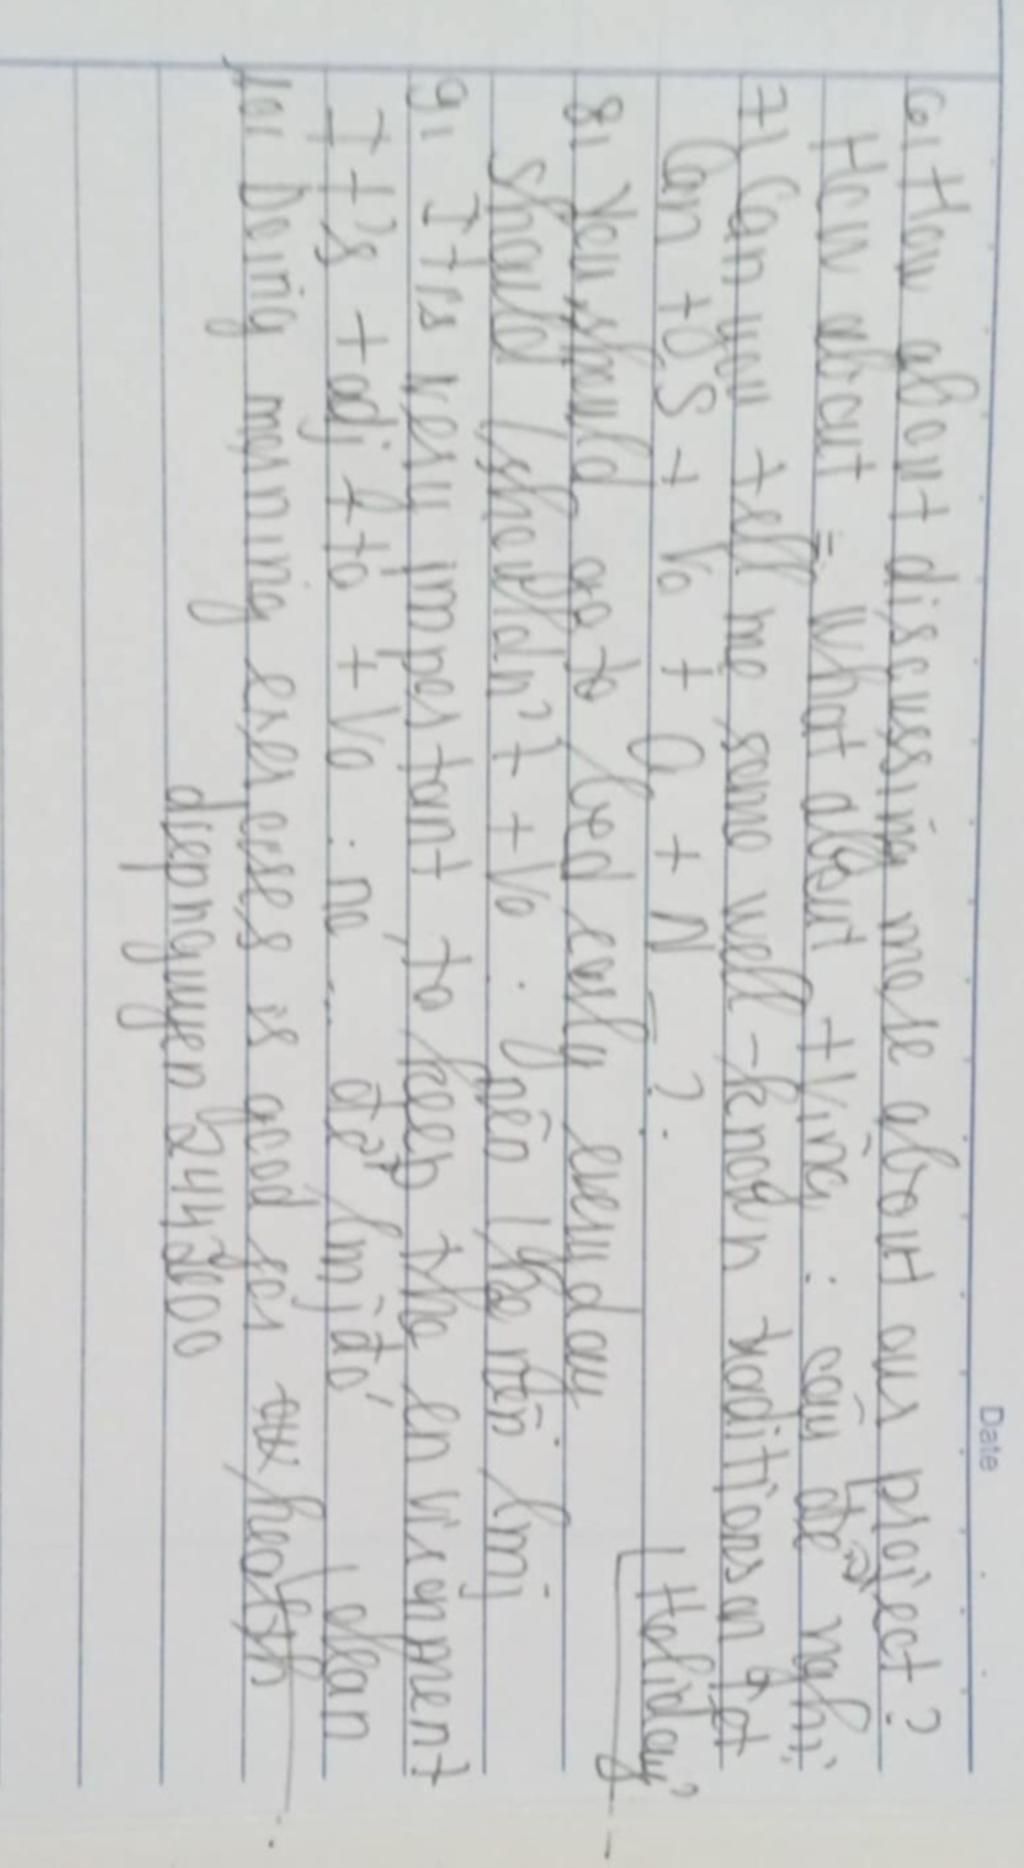 Date
6, How about discussing more about our project?
How about = What about + Ving : câu đề nghị
7, Can you tell me some well-known traditions on Tet
Holiday?
Can + S + Vo + O + N _ ?
8, You should go to bed early everyday
should / shouldn't + Vo : nên / ko nên làm j
9, It is very important to keep the environment
clean
It's + adj + to + Vo : nó ... để làm j đó
10, Doing morning exercises is good for our health
diepnguyen2442000